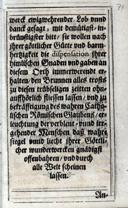 werck ewigwehrender Lob unnd
danck gesagt, mit demütigst, in-
brünstigster bitt, sie wollen nach
ihrer göttlicher Güte und barm-
hertzigkeit die dispensation ihrer
himlischen Gnaden und gaben an
diesem Orth immerwerendt er-
halten, den Brunnen alles trosts
zu diesen trübseligen zeitten ohn-
auffhörlich fliessen lassen, und zu
bekräfftigung des wahren Catho-
lischen Römischen Glaubens, er-
leuchtung der verblent, und irr-
gehender Menschen daß wahre
siegel und liecht ihrer Gött-
licher wunderwercken gnädigst
offenbahren, und durch
alle Welt scheinen
lassen.
An-